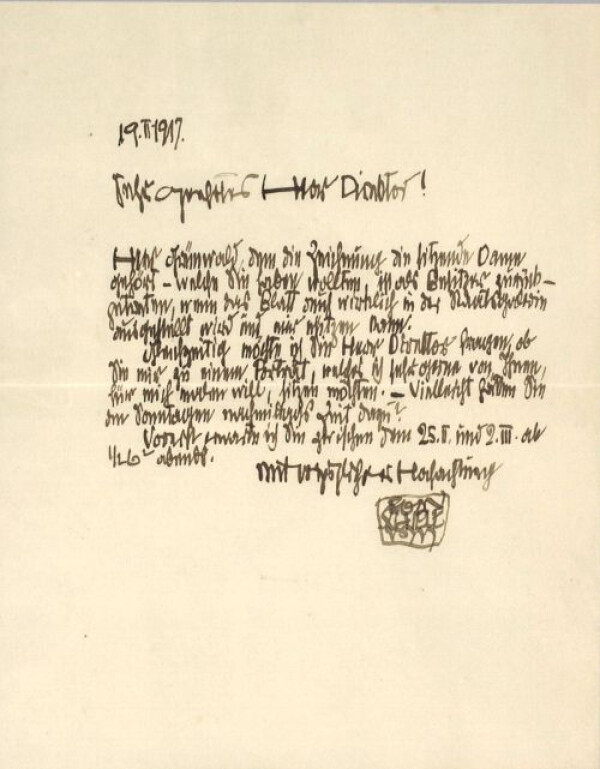 19.II.1917.
Sehr geehrter Herr Direktor!
Herr Grünwald, dem die Zeichnung die sitzende Dame
gehört – welche Sie haben wollten, ist als Besitzer zurück-
zutreten, wenn das Blatt auch wirklich in der Staatsgalerie
ausgestellt wird und
Gleichzeitig möchte ich Sie Herr Direktor fragen, ob
Sie mir zu einem Porträt, welches ich sehr gerne von Ihnen,
für mich malen will, sitzen möchten. – Vielleicht haben Sie
an Sonntagen nachmittags Zeit dazu?
Vorerst erwarte ich Sie zwischen dem 25.II. und 2.III. ab
1/2 6h abends.
Mit vorzüglicher Hochachtung